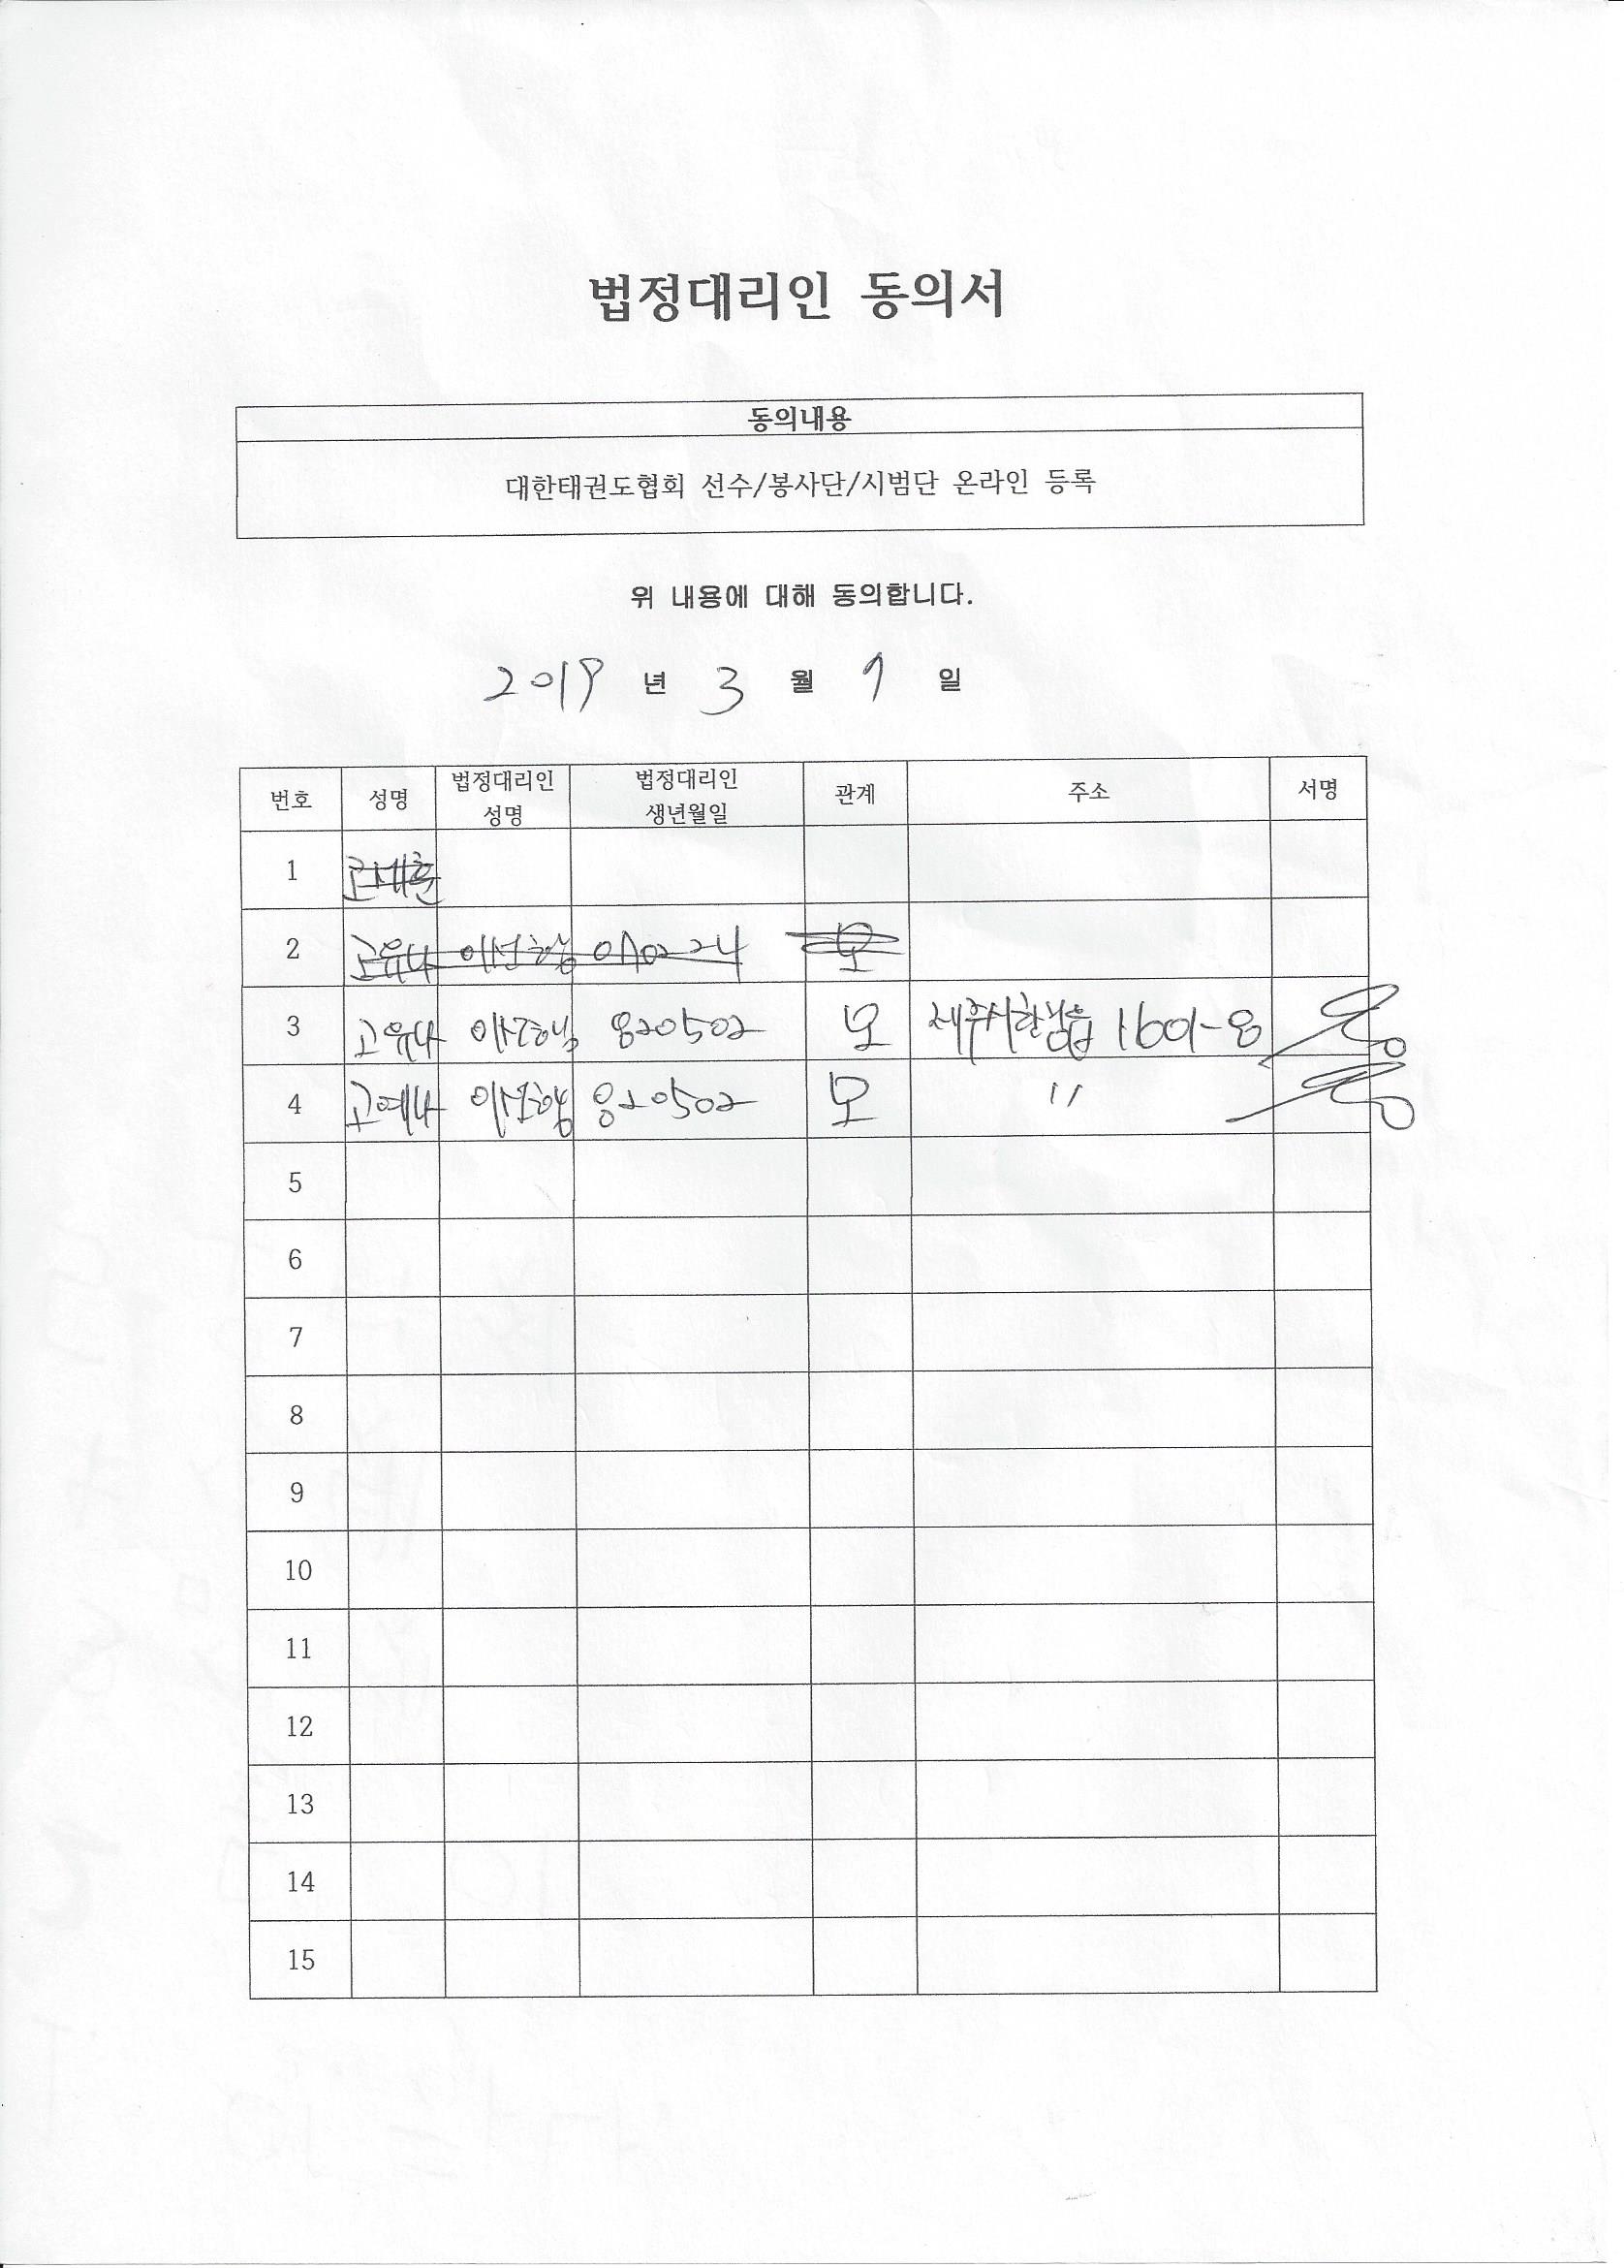 법정대리인 동의서
동의내용
대한태권도협회 선수/봉사단/시범단 온라인 등록
위 내용에 대해 동의합니다.
2019 년 3 월 9 일
번호 성명 법정대리인 성명 법정대리인 생년월일 관계 주소 서명
1 고세훈
2 고유나 모
3 고유나 820502 모 제주시한림읍 1601-8
4 고예나 820502 모 〃
5
6
7
8
9
10
11
12
13
14
15